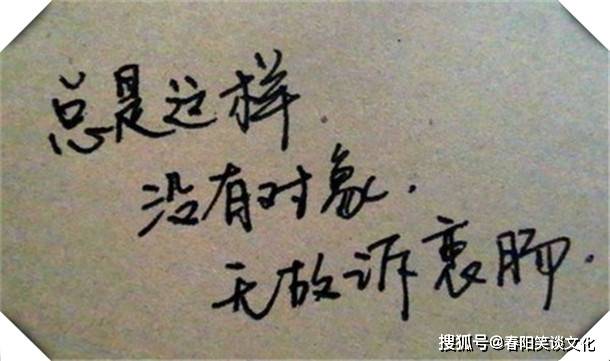 总是这样
没有对象.
无故诉衷肠.
搜狐号@春阳笑谈文化